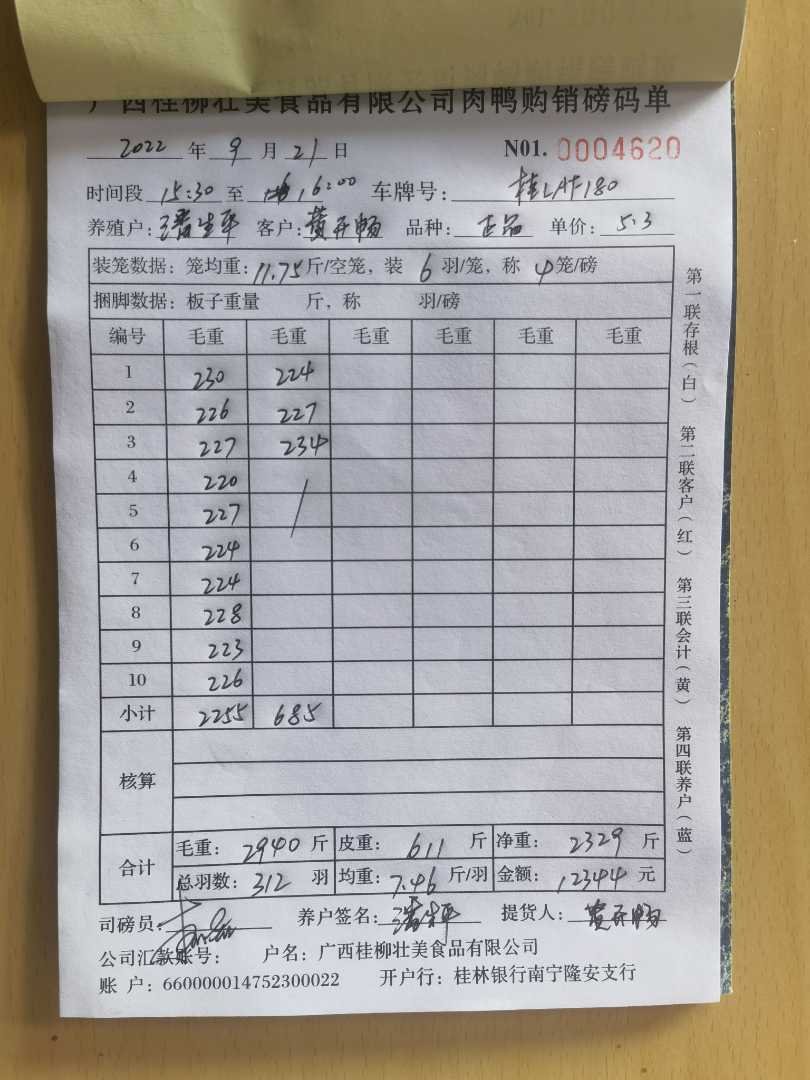 广西桂柳壮美食品有限公司肉鸭购销磅码单
2022 年 9 月 21 日 N01. 0004620
时间段 15:30 至 16:00 车牌号: 桂LAF180
养殖户: 潘生平 客户: 黄开畅 品种: 正品 单价: 5.3
装笼数据: 笼均重: 11.75 斤/空笼, 装 6 羽/笼, 称 4 笼/磅
捆脚数据: 板子重量 斤, 称 羽/磅
编号 毛重 毛重 毛重 毛重 毛重 毛重
1 230 224
2 226 227
3 227 234
4 220
5 227
6 224
7 224
8 228
9 223
10 226
小计 2255 685
核算
合计
毛重: 2940 斤 皮重: 611 斤 净重: 2329 斤
总羽数: 312 羽 均重: 7.46 斤/羽 金额: 12344 元
司磅员: 养户签名: 潘生平 提货人: 黄开畅
公司汇款账号: 户名: 广西桂柳壮美食品有限公司
账 户: 660000014752300022 开户行: 桂林银行南宁隆安支行
第一联存根(白) 第二联客户(红) 第三联会计(黄) 第四联养户(蓝)